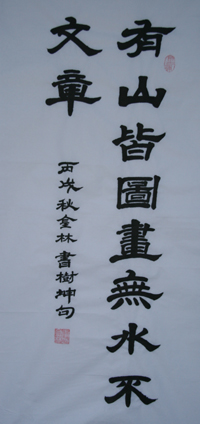 有山皆圖畫無水不
文章
丙戌秋金林書樹坤句